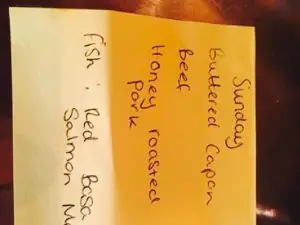 Sunday
Buttered Capon
Beef
Honey roasted
Pork
Fish : Red Basa
Salmon